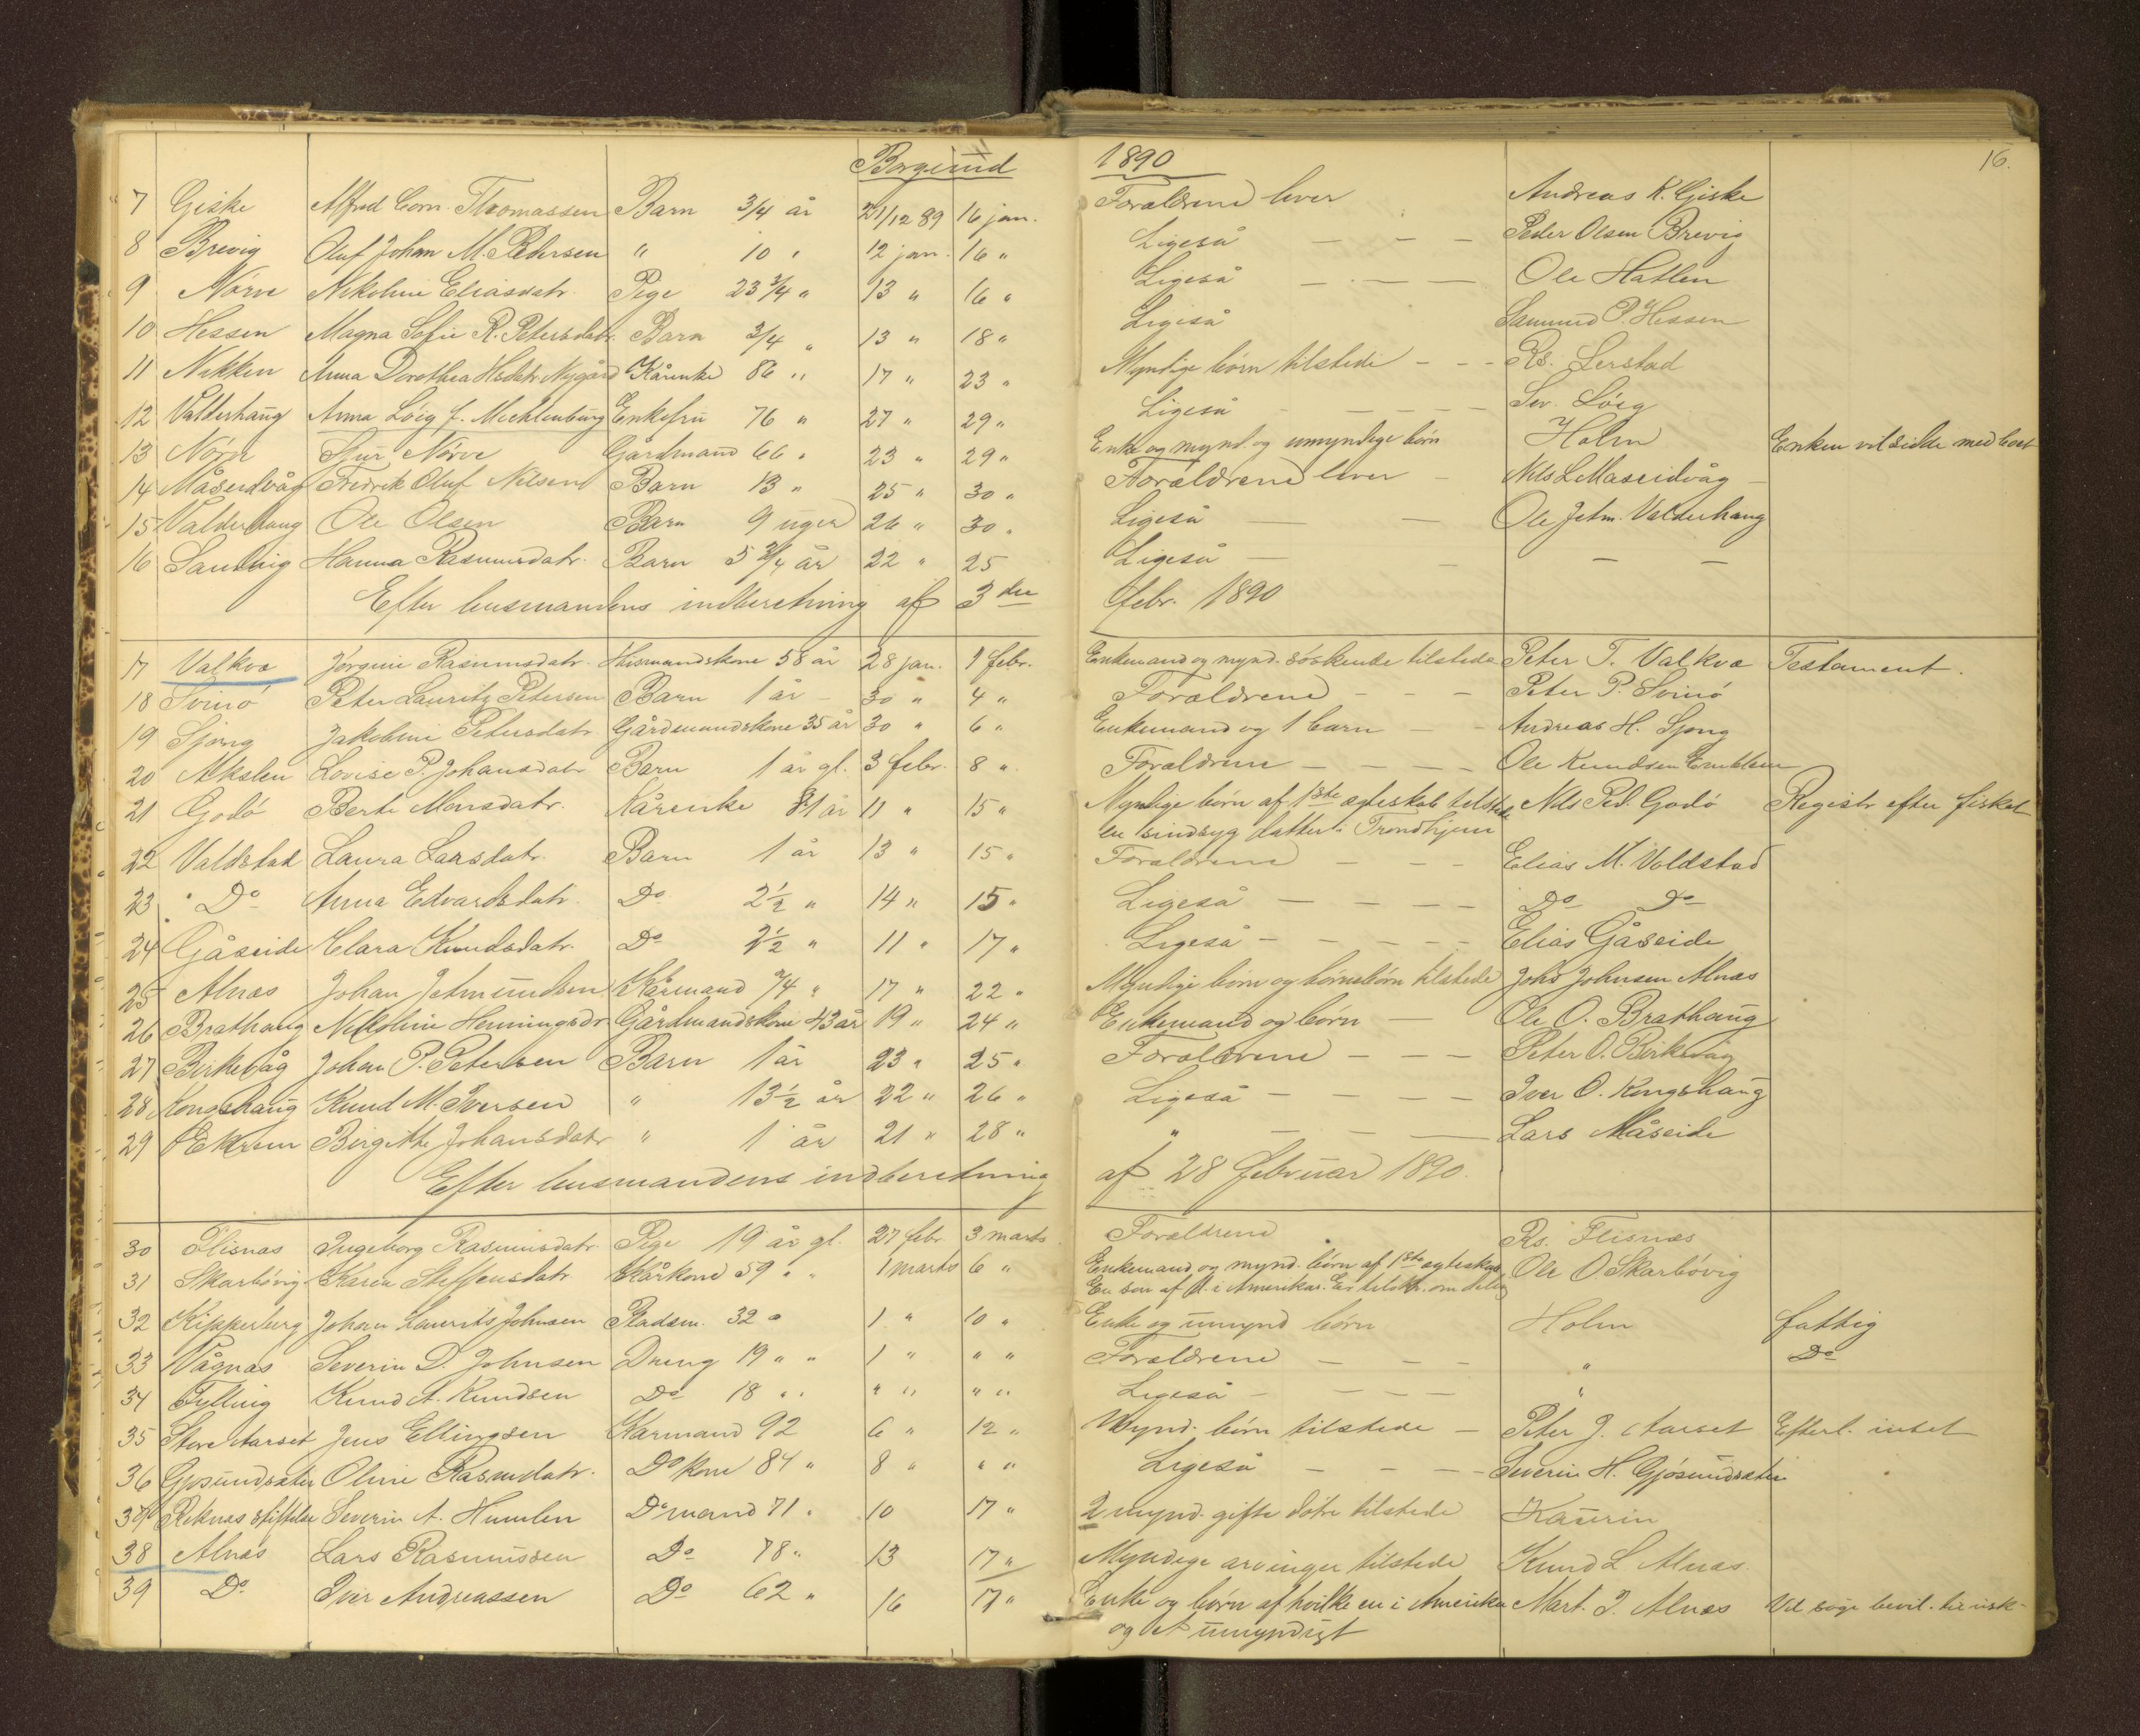 Borgund 1890 16.
7 Giske Alfred Corn. Thomassen Barn 3/4 år 21/12 89 16 jan. Forældrene lever Andreas K. Giske
8 Brevig Oluf Johan M. Pedersen " 10 " 12 jan. 16 " Ligeså — — — Peder Olsen Brevig
9 Nørve Nikoline Eliasdatr. Pige 23 3/4 " 13 " 16 " Ligeså — — — Ole Hatlen
10 Hessen Magna Sofie R. Petersdatr. Barn 3/4 " 13 " 18 " Ligeså P. Hessen
11 Nekken Anna Dorothea Nygård Kårenke 86 " 17 " 23 " Myndige børn tilstede — — Rs. Lerstad
12 Valderhaug Anna Løig f. Mechlenburg Enkefru 76 " 27 " 29 " Ligeså — — — Sev. Løig
13 Nørve Sjur Nørve Gårdmand 66 " 23 " 29 " Enke og mynd. og umyndige børn Holm Enken vil sidde med boet
14 Måseidvåg Fredrik Oluf Nilsen Barn 13 " 25 " 30 " Forældrene lever — Nils L Maseidvåg —
15 Valderhaug Ole Olsen Barn 9 uger 26 " 30 " Ligeså — — Ole Jetm. Valderhaug
16 Sandvig Hanna Rasmusdatr. Barn 5 3/4 år 22 " 25 Ligeså — — — —
Efter lensmandens indberetning af 3die febr. 1890
17 Valkvæ Jørgine Rasmusdatr. Husmandskone 58 år 28 jan. 1 febr. Enkemand og mynd. søskende tilstede Peter T. Valkvæ Testament.
18 Svinø Peter Lauritz Petersen Barn 1 år — 30 " 4 " Forældrene — — — Peter P. Svinø
19 Sjong Jakobine Petersdatr Gårdmandskone 35 år 30 " 6 " Enkemand og 1 barn — — Andreas H. Sjong
20 Akslen Lovise P. Johansdatr Barn 1 år gl. 3 febr. 8 " Forældrene — — — — Ole Knudsen Emblem
21 Godø Berte Monsdatr. Kårenke 81 år 11 " 15 " Myndige børn af 1ste ægteskab tilstede Nils Ped. Godø Registr. efter
en sindsyg datter i Trondhjem
22 Valdstad Laura Larsdatr. Barn 1 år 13 " 15 " Forældrene — — — Elias M. Voldstad
23 Do Anna Edvardsdatr. Do 2½ " 14 " 15 " Ligeså — — — — Do Do
24 Gåseide Clara Knudsdatr. Do 2½ " 11 " 17 " Ligeså — — — — Elias Gåseide
25 Alnæs Johan Jetmundsen Kårmand 74 " 17 " 22 " Myndige børn og børnebørn tilstede Johs Johnsen Alnæs
26 Brathaug Nikoline Henningsdr Gårdmandskone 43 år 19 " 24 " Enkemand og børn — Ole O. Brathaug
27 Birkevåg Johan P. Petersen Barn 1 år 23 " 25 " Forældrene — — — Peter O. Birkevåg
28 Kongshaug Knud M. Iversen " 13½ år 22 " 26 " Ligeså — — — — Iver O. Kongshaug
29 Birgitte Johansdatr " 1 år 21 " 28 " " — — — Lars Måseide
Efter lensmandens indberetning af 28 februar 1890.
30 Flisnæs Ingeborg Rasmusdatr Pige 19 år gl. 27 febr 3 marts Forældrene Rs. Flisnæs
31 Skarbøvig Karen Steffensdatr Kårkone 59 " " 1 marts 6 " Enkemand og mynd. børn af 1ste ægteskab Ole O Skarbøvig
En søn af i Amerika.
32 Kipperberg Johan Laurits Johnsen Pladsm. 32 " 1 " 10 " Enke og umynd børn Holm fattig
33 Vågnæs Severin D. Johnsen Dreng 19 " " 1 " " " Forældrene — — — " Do
34 Fylling Knud A. Knudsen Do 18 " " " " " " Ligeså — — — — "
35 Store Aarset Jens Ellingsen Kårmand 92 6 " 12 " Mynd. børn tilstede — Peter J. Aarset Efterl. intet
36 Gjøsundsæter Oline Rasmdatr. Do kone 84 " 8 " " " Ligeså — — — Severin H. Gjøsundsæter
37 Reknæs stiftelse Severin A. Humlen Do mand 71 " 10 17 " 2 mynd. gifte døtre tilstede Kaurin
38 Alnæs Lars Rasmussen Do 78 " 13 17 " Myndige arvinger tilstede Knud L. Alnæs.
39 Do. Iver Andreassen Do 62 " 16 17 " Enke og børn af hvilke en i Amerika Mart. I. Alnæs Vil søge bevil. til
og et umyndigt